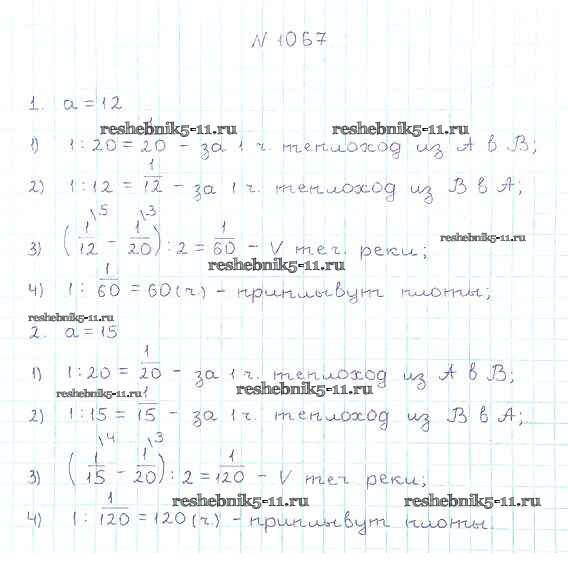 N 1067
1. a = 12
reshebnik5-11.ru reshebnik5-11.ru
1) 1 : 20 = 1/20 – за 1 ч. теплоход из А в В;
2) 1 : 12 = 1/12 – за 1 ч. теплоход из В в А;
\5 \3
3) (1/12 – 1/20) : 2 = 1/60 – V теч. реки; reshebnik5-11.ru
reshebnik5-11.ru
4) 1 : 1/60 = 60 (ч.) – приплывут плоты;
reshebnik5-11.ru
2. a = 15
1) 1 : 20 = 1/20 – за 1 ч. теплоход из А в В;
reshebnik5-11.ru reshebnik5-11.ru
2) 1 : 15 = 1/15 – за 1 ч. теплоход из В в А;
\4 \3
3) (1/15 – 1/20) : 2 = 1/120 – V теч. реки;
reshebnik5-11.ru reshebnik5-11.ru
4) 1 : 1/120 = 120 (ч.) – приплывут плоты.